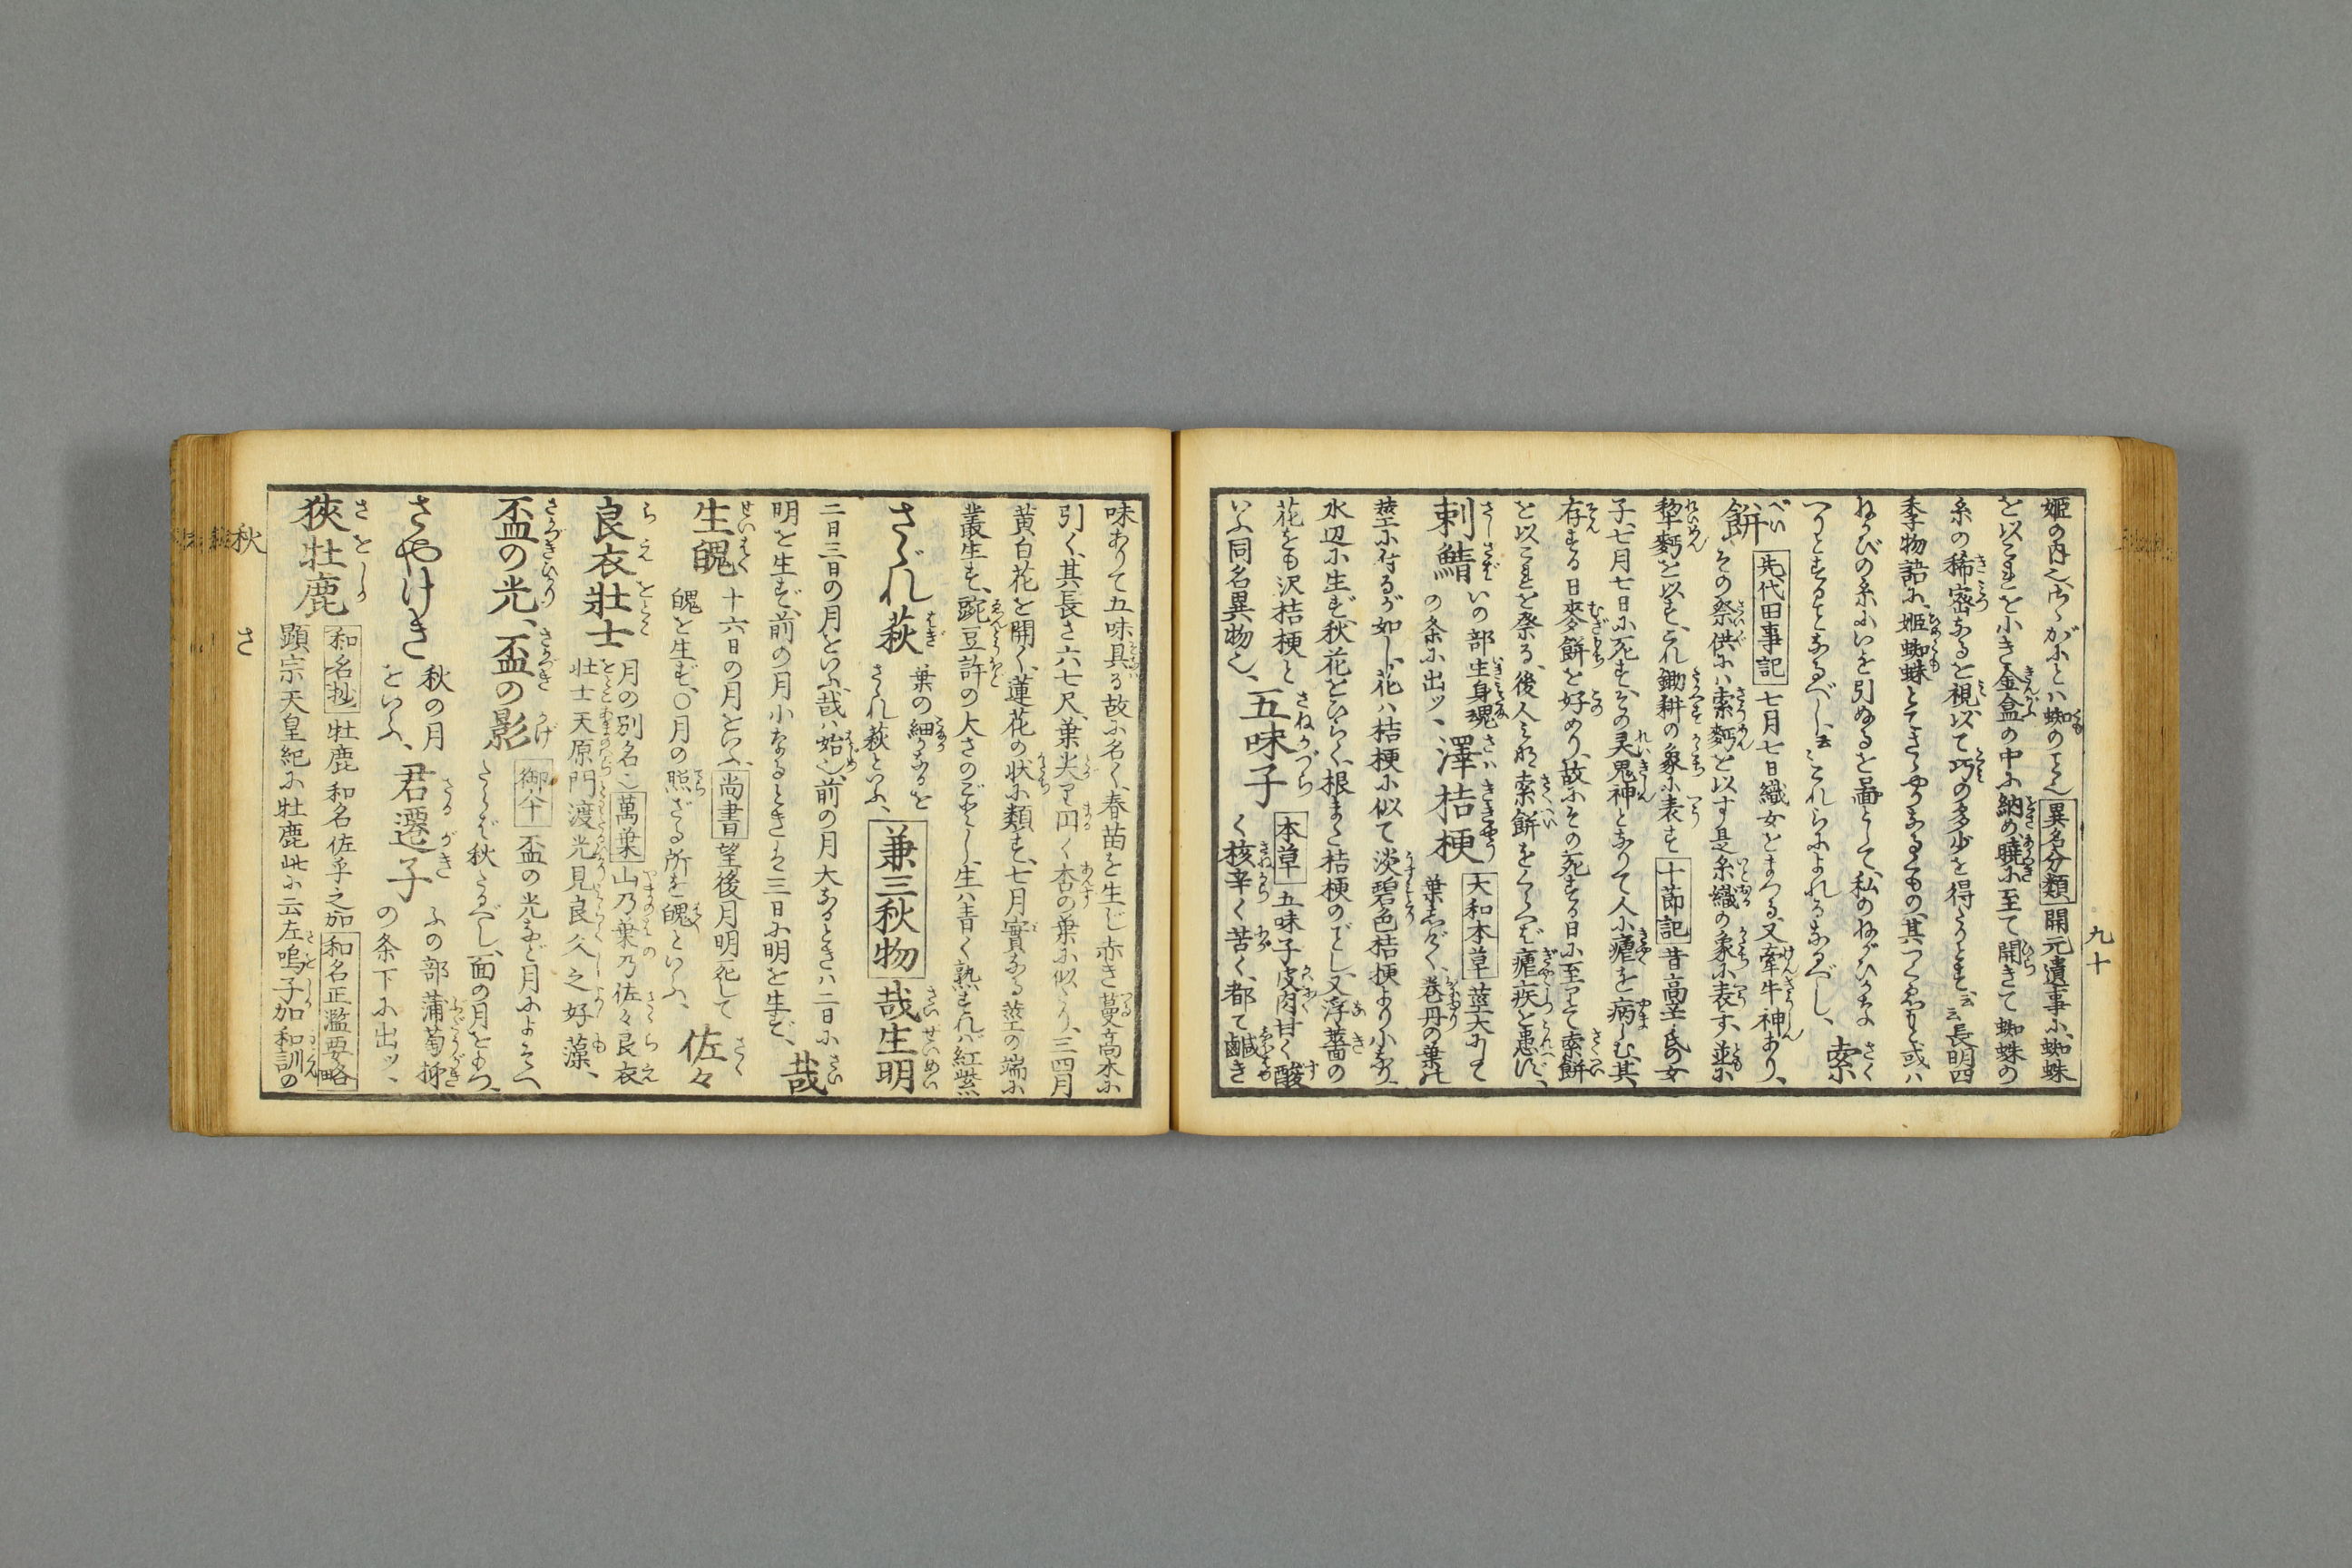 九十
姫の内也、さゝがにとハ蜘のこと也異名分類開元遺事に、蜘蛛
を以これを小き金盒の中に納め暁に至て開きて蜘蛛の
糸の稀密なるを視、以て巧の多少を得たりとす、云云長明四
季物語に、姫蜘蛛とてさゝやかなるもの、其つくゑ
ねがひの糸にいを引ぬるを
つりとすることなるべし、云云これらによれるなるべし、索
餅先代旧事記七月七日織女をまつる、又牽牛神あり、
その祭供にハ索麪を以す是糸織の象に表す、並に
犂麪を以す、これ鋤耕の象に表す十節記昔高辛氏の女
子、七月七日に死す、その灵鬼神となりて人に瘧を病しむ、其
存する日麥餅を好めり、故にその死する日に至りて索餅
を以これを祭る、後人此索餅をくらへば瘧疾を患ず、
刺鯖いの部生身魂
の条に出ッ、澤桔梗大和本草莖大にして
葉しげく、巻丹の葉の
莖に付るが如し、花ハ桔梗に似て淡碧色桔梗より小なり、
水辺に生ず、秋花をひらく、根また桔梗のごとし、又浮薔の
花をも沢桔梗と
いふ同名異物也、五味子本草五味子皮肉甘く酸
く核辛く苦く、都て鹹き
味ありて五味具る故に名く、春苗を生じ赤き蔓高木に
引く、其長さ六七尺、葉尖り円く杏の葉に似たり、三四月
黄白花を開く、蓮花の状に類す、七月實なる莖の端に
叢生す、豌豆許の大さのごとし、生ハ青く熟すれバ紅紫
さゞれ萩葉の細かなるを
さゞれ萩といふ、兼三秋物哉生明
二日三日の月といふ、哉ハ始也、前の月大なるときハ二日に
明を生ず、前の月小なるときは三日に明を生ず、哉
生魄十六日の月といふ、尚書望後月明死して
魄を生ず、〇月の照ざる所を魄といふ、佐々
良衣壮士月の別名也萬葉山乃葉乃佐々良衣
壮士天原門渡光見良久之好藻、
盃の光、盃の影御傘盃の光など月によそへ
たらば秋たるべし、面の月をもつ、
さやけき秋の月
をいふ、君遷子ふの部蒲萄柹
の条下に出ッ、
狹牡鹿和名抄牡鹿和名佐乎之加和名正濫要略
顯宗天皇紀に牡鹿此に云左嗚子加和訓の
秋
さ